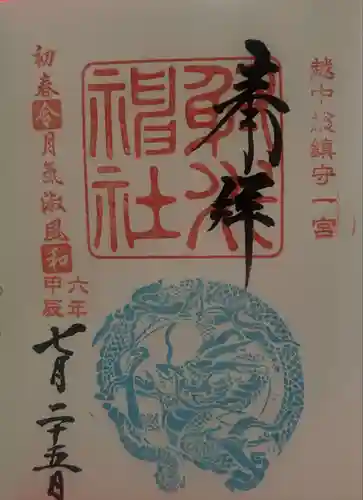 越中総鎮守一宮
奉拝
射水
神社
初春令月氣淑風和
六年
甲辰
七月二十五日